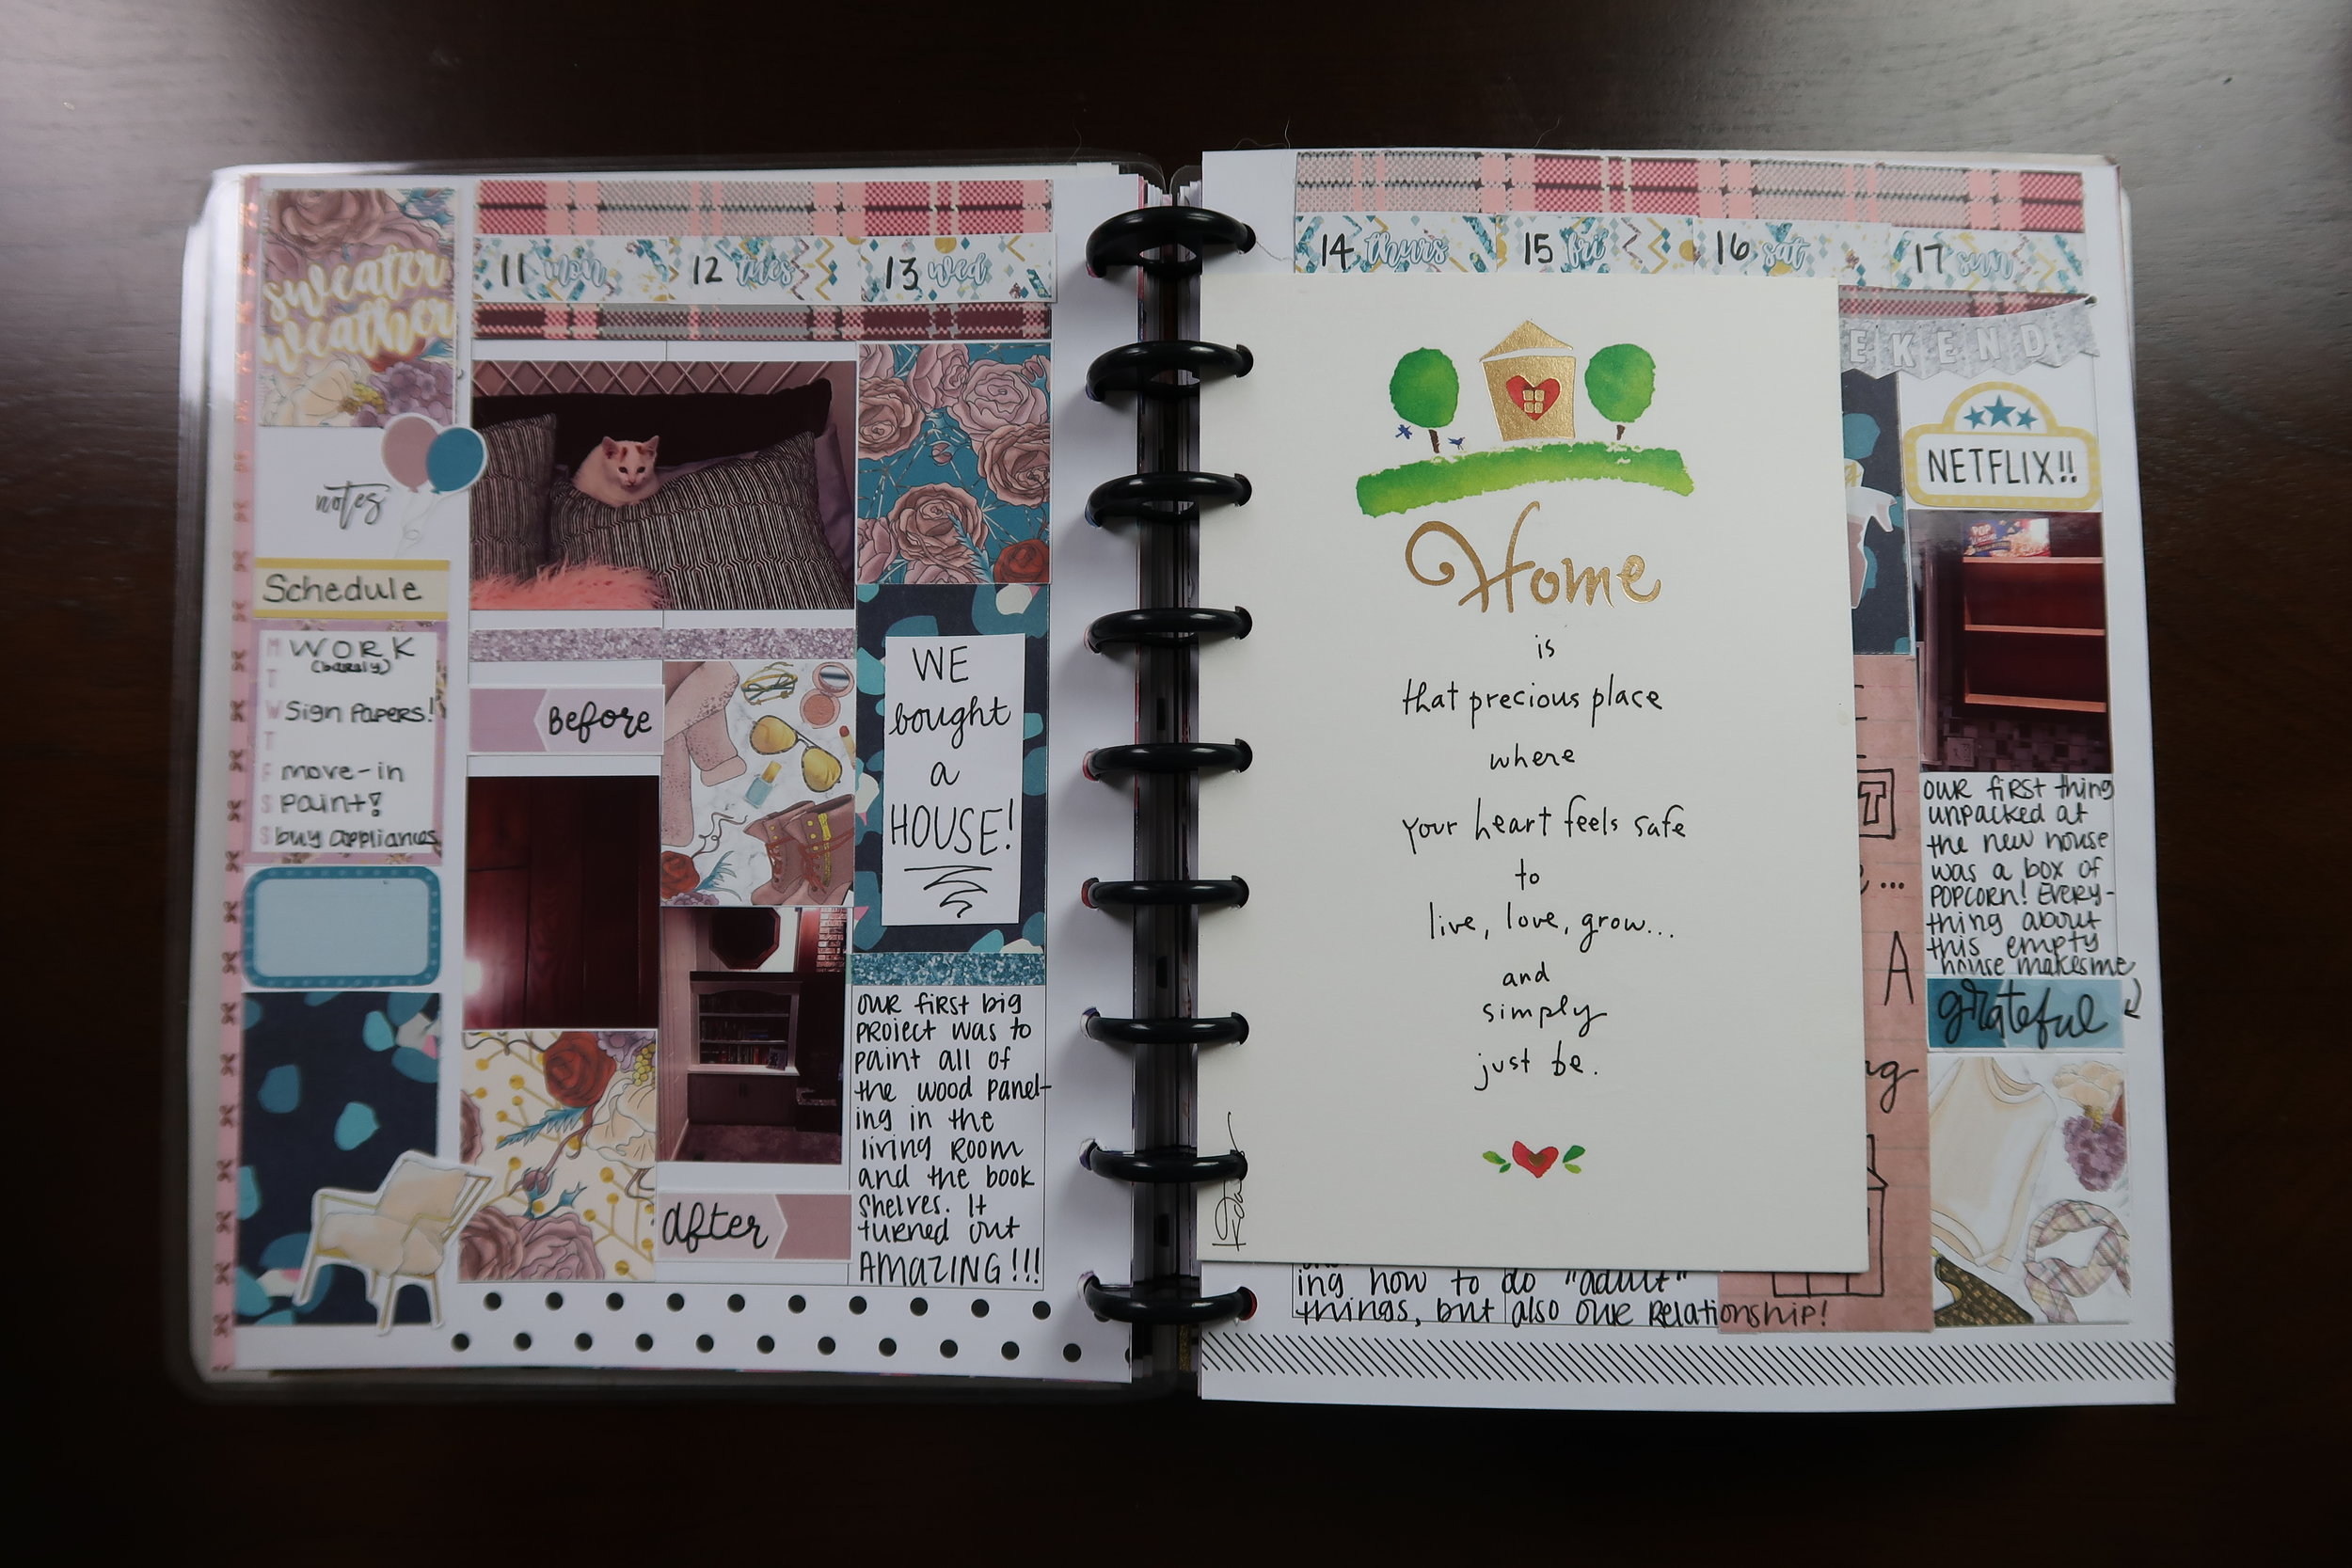 sweater
weather
notes
Schedule
M WORK
(barely)
T
W Sign Papers!
T
F move-in
S paint!
S buy appliances
11 mon 12 tues 13 wed
Before
After
WE
bought
a
HOUSE!
OUR first big
project was to
paint all of
the wood panel-
ing in the
living ROOM
and the book
shelves. It
turned out
AMAZING!!!
14 thurs 15 fri 16 sat 17 sun
Home
is
that precious place
where
your heart feels safe
to
live, love, grow...
and
simply
just be.
ing how to do "adult"
things, but also our relationship!
EKEND
NETFLIX!!
POP
T
...
A
ng
OUR first thing
unpacked at
the new house
was a box of
POPCORN! EVERY-
thing about
this empty
house makes me
grateful